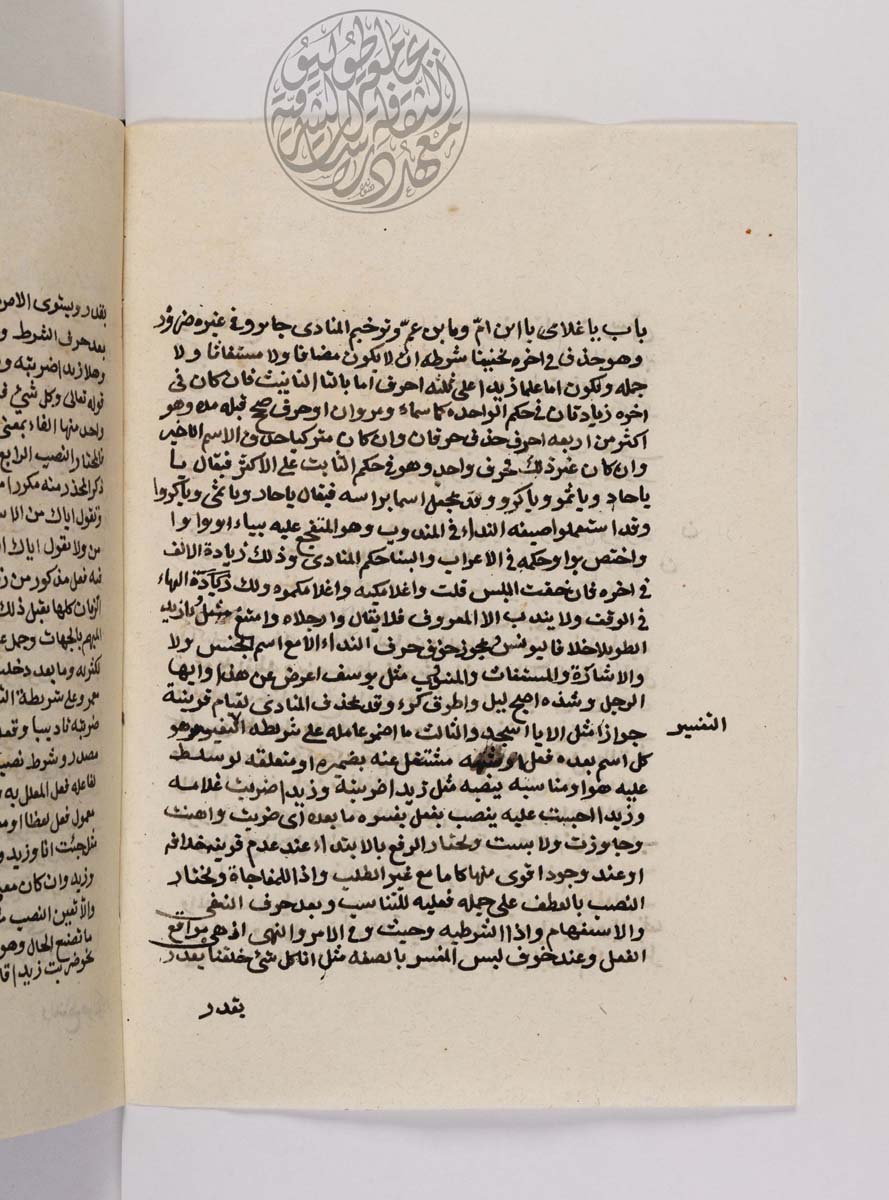 باب ياغلامى يا ابن ام وما بن عم وترخيم المنادى جايز وفى غيره ضرورة
وهو حذف فى اخره تخفيفا شرطه ان لا يكون مضافا ولا مستغاثا ولا
جمله ويكون اما علما زيدا على ثلثه احرف اما بالتا التانيث فان كان فى
اخره زيادتان فى حكم الواحده كاسماء ومروان او حرف صحيح قبله مده وهو
اكثر من اربعه احرف حذفى حرفان وان كان متركبا حذف الاسم الاخير
وان كان غير ذلك فحرف واحد وهو فى حكم الثابت على الاكثر فيقال يا
ياحار ويا ثمو وياكرو وقد يجعل اسما براسه فيقال ياحار ويا ثمى وياكروا
وقد استعملوا صيغه النداء فى المندوب وهو المتفجع عليه بياء او يوا وا
واختص بوا وحكمه فى الاعراب والبنا حكم المنادى وذلك زيادة الالف
فى اخره فان خفت اللبس قلت واغلامكيه واغلامكموه ولك زيادة الهاء
فى الوقت ولا يندب الا المعروف فلا يقال وارجلاه وامتنع مثل وازيد
الطويلا خلافا ليونس ويجوز حذف حرف النداء الا مع اسم الجنس ولا
والاشارة والمستغاث والمندوب مثل يوسف اعرض عن هذا وايها
الرجل وشذ اصبح ليل واطرق كرا وقد يحذف المنادى لقيام قرينة
جوازا مثل الا يا اسجدو والثالث ما اضمر عامله على شريطه التفسير وهو
كل اسم بعده فعل او شبهه مشتغل عنه بضميره او متعلقه لو سلط
عليه هو او مناسبه ينصبه مثل زيدا ضربته وزيدا ضربت غلامه
وزيدا احبست عليه ينصب بفعل يفسره ما بعده اى ضربت واهنت
وجاوزت ولا بست ويختار الرفع بالابتداء عند عدم قرينه خلافه
او عند وجود اقوى منها كاما مع غير الطلب واذا للمفاجاة ويختار
النصب بالعطف على جمله فعليه للتناسب وبعد حرف النفى
والاستفهام واذا الشرطيه وحيث وفى الامر والنهى اذ هى مواقع
الفعل وعند خوف لبس المفسر بالصفه مثل انا كل شئ خلقناه بقدر
بقدر
التفسير
بقدر ويستوى الامر
بعد حرف الشرط و
وهلا زيدا ضربته و
قوله تعالى وكل شئ ف
واحد منها الفاء بمعنى
فالمختار النصب الرابع
ذكر المحذر منه مكررا م
وتقول اياك من الاس
من ولا تقول اياك ال
فيه فعل مذكور من ز
الزمان كلها يقبل ذلك
المبهم بالجهات وحمل ع
لكثرته وما بعد دخلت
وعلى شريطة الت
ضربته تاديبا وقعد
مصدر وشرط نصب
لفاعله فعل المعلل به
معمول فعل لفظا او مع
مثل جئت انا وزيد و
وزيد وان كان معن
والا تعين النصب م
ما تصنع الحال وهو
نحو ضربت زيدا قا